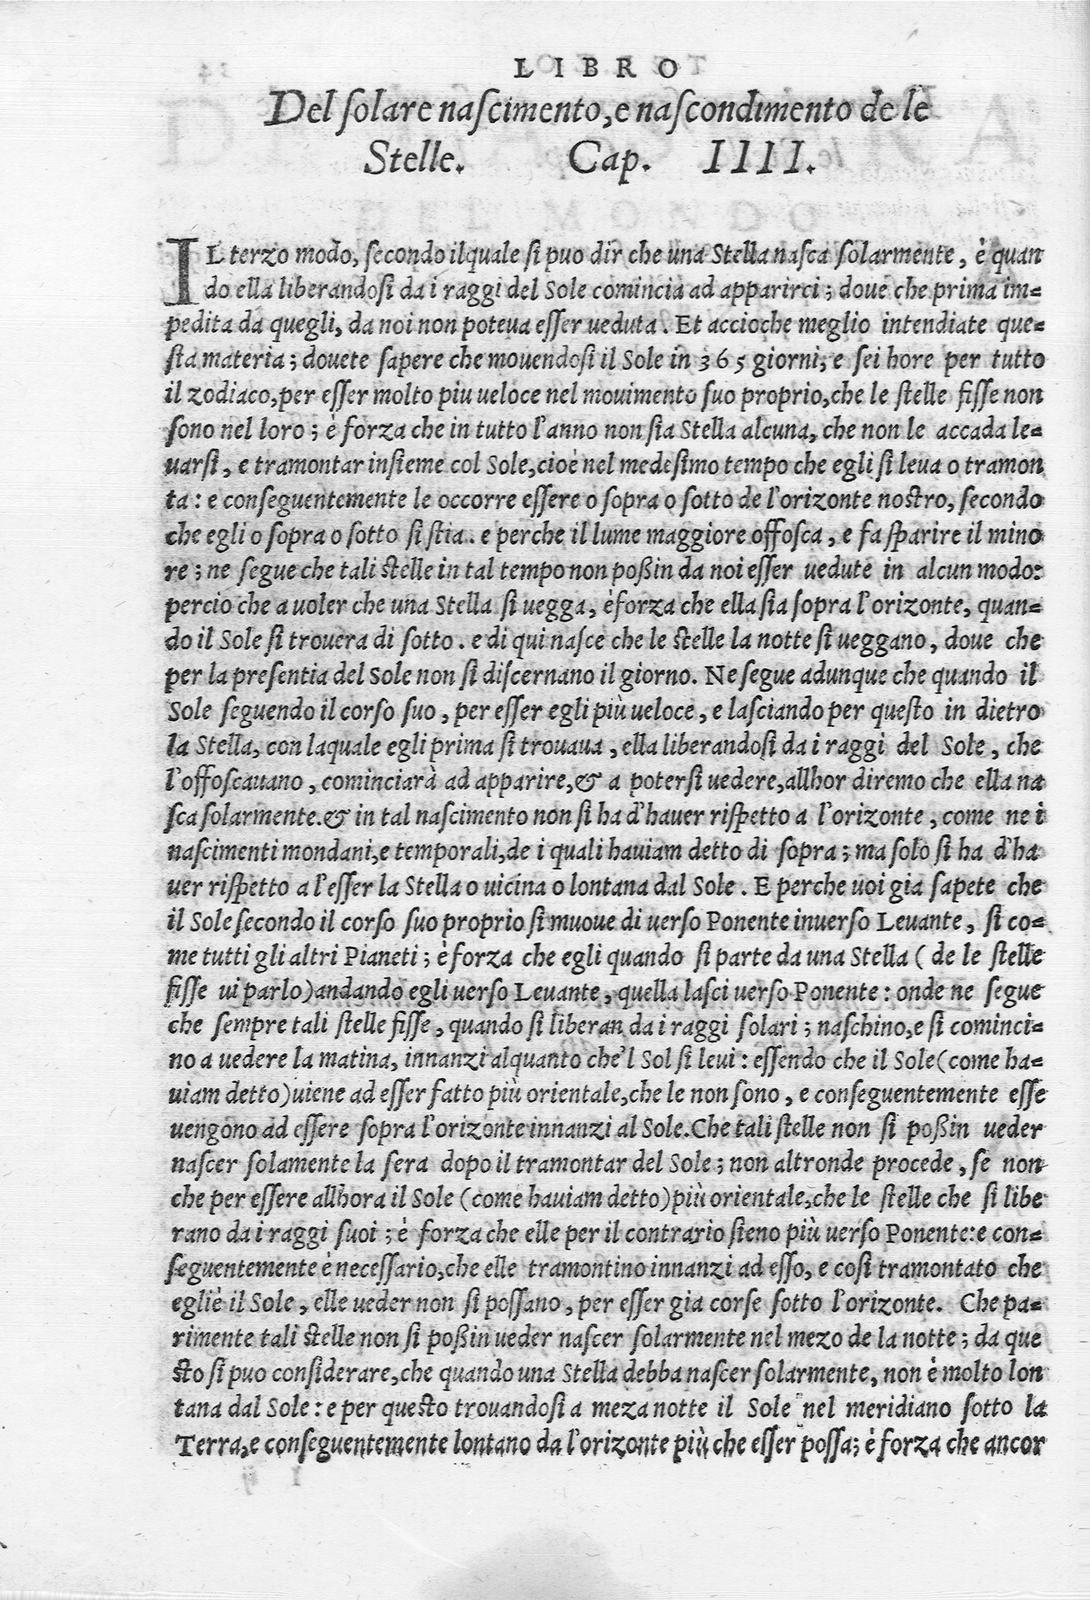 LIBRO
Del ſolare naſcimento, e naſcondimento de le
Stelle. Cap. IIII.
IL terzo modo, ſecondo ilquale ſi puo dir che una Stella naſca ſolarmente, è quan
do ella liberandoſi da i raggi del Sole comincia ad apparirci; doue che prima im=
pedita da quegli, da noi non poteua eſſer ueduta. Et accioche meglio intendiate que=
ſta materia; douete ſapere che mouendoſi il Sole in 365 giorni, e ſei hore per tutto
il zodiaco, per eſſer molto piu ueloce nel mouimento ſuo proprio, che le ſtelle fiſſe non
ſono nel loro; è forza che in tutto l'anno non ſia Stella alcuna, che non le accada le=
uarſi, e tramontar inſieme col Sole, cioè nel medeſimo tempo che egli ſi leua o tramon
ta: e conſeguentemente le occorre eſſere o ſopra o ſotto de l'orizonte noſtro, ſecondo
che egli o ſopra o ſotto ſi ſtia. e perche il lume maggiore offoſca, e fa ſparire il mino
re; ne ſegue che tali ſtelle in tal tempo non poßin da noi eſſer uedute in alcun modo:
percio che a uoler che una Stella ſi uegga, è forza che ella ſia ſopra l'orizonte, quan=
do il Sole ſi trouera di ſotto. e di qui naſce che le ſtelle la notte ſi ueggano, doue che
per la preſentia del Sole non ſi diſcernano il giorno. Ne ſegue adunque che quando il
Sole ſeguendo il corſo ſuo, per eſſer egli più ueloce, e laſciando per queſto in dietro
la Stella, con laquale egli prima ſi trouaua, ella liberandoſi da i raggi del Sole, che
l'offoſcauano, cominciarà ad apparire, & a poterſi uedere, allhor diremo che ella na
ſca ſolarmente. & in tal naſcimento non ſi ha d'hauer riſpetto a l'orizonte, come ne i
naſcimenti mondani, e temporali, de i quali hauiam detto di ſopra; ma ſolo ſi ha d'ha
uer riſpetto a l'eſſer la Stella o uicina o lontana dal Sole. E perche uoi gia ſapete che
il Sole ſecondo il corſo ſuo proprio ſi muoue di uerſo Ponente inuerſo Leuante, ſi co=
me tutti gli altri Pianeti; è forza che egli quando ſi parte da una Stella (de le ſtelle
fiſſe ui parlo) andando egli uerſo Leuante, quella laſci uerſo Ponente: onde ne ſegue
che ſempre tali ſtelle fiſſe, quando ſi liberan da i raggi ſolari; naſchino, e ſi cominci=
no a uedere la matina, innanzi alquanto che'l Sol ſi leui: eſſendo che il Sole (come ha=
uiam detto) uiene ad eſſer fatto più orientale, che le non ſono, e conſeguentemente eſſe
uengono ad eſſere ſopra l'orizonte innanzi al Sole. Che tali ſtelle non ſi poßin ueder
naſcer ſolamente la ſera dopo il tramontar del Sole; non altronde procede, ſe non
che per eſſere allhora il Sole (come hauiam detto) più orientale, che le ſtelle che ſi libe
rano da i raggi ſuoi; è forza che elle per il contrario ſieno più uerſo Ponente: e con=
ſeguentemente è neceſſario, che elle tramontino innanzi ad eſſo, e coſi tramontato che
egliè il Sole, elle ueder non ſi poſſano, per eſſer gia corſe ſotto l'orizonte. Che pa=
rimente tali ſtelle non ſi poßin ueder naſcer ſolarmente nel mezo de la notte; da que
ſto ſi puo conſiderare, che quando una Stella debba naſcer ſolarmente, non è molto lon
tana dal Sole: e per queſto trouandoſi a meza notte il Sole nel meridiano ſotto la
Terra, e conſeguentemente lontano da l'orizonte più che eſſer poſſa; è forza che ancor